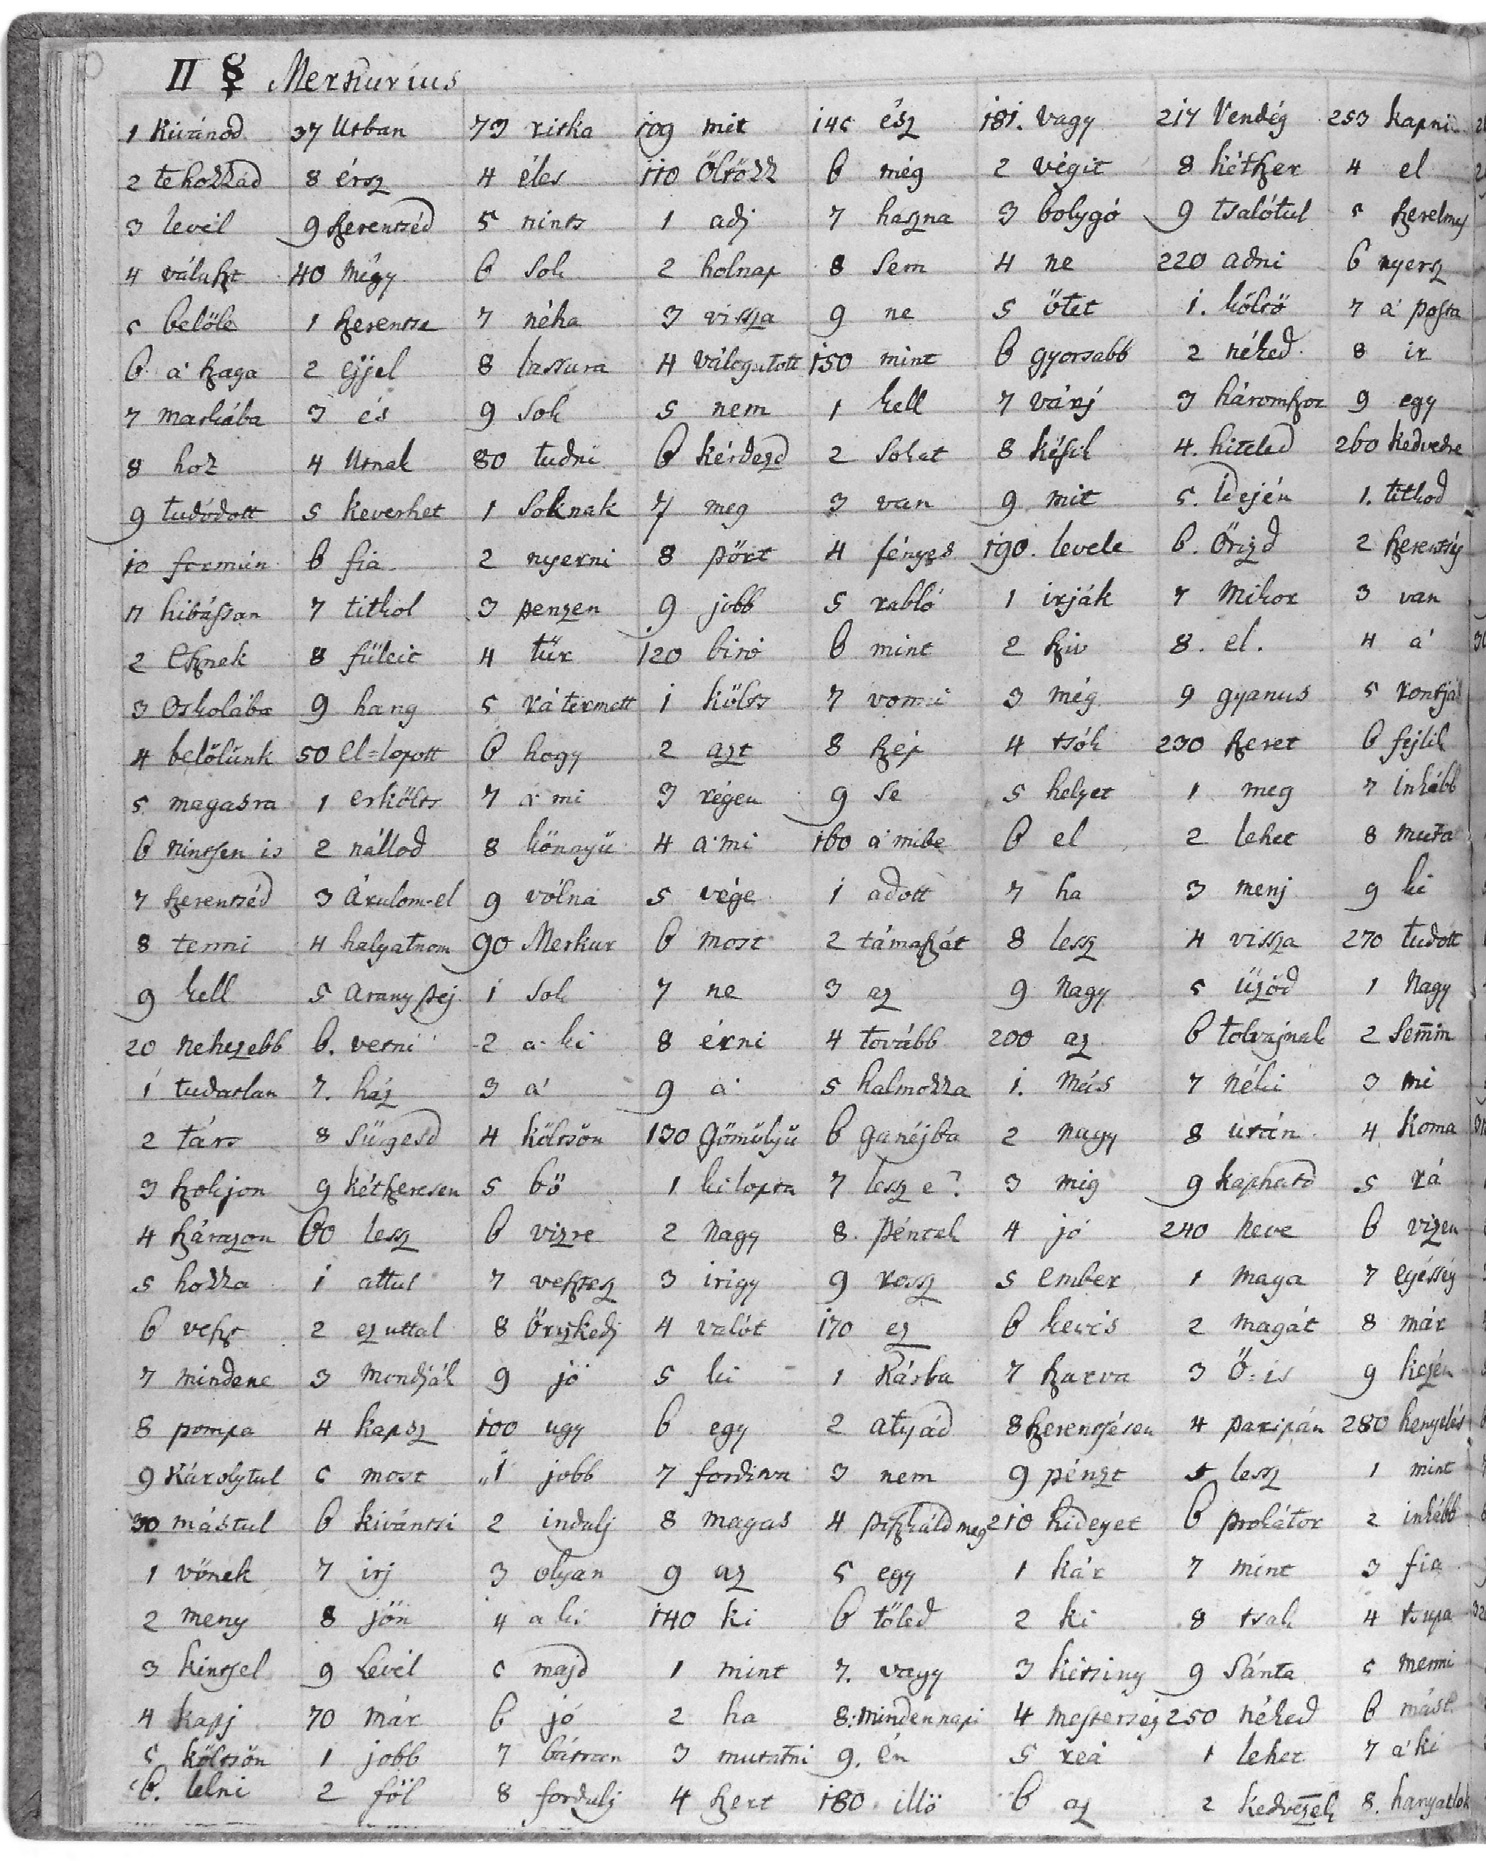 II ☿ Merkurius
1 Kivánod 37 Utban 73 ritka 109 mit 145 ész 181. vagy 217 Vendég 253 kapni
2 tehozzád 8 érsz 4 éles 110 Öltözz 6 még 2 végit 8 kétszer 4 el
3 levél 9 szerentséd 5 nints 1 adj 7 haszna 3 bolygó 9 tsalótul 5 szerelmes
4 választ 40 mégy 6 Sok 2 holnap 8 Sem 4 ne 220 adni 6 nyersz
5 belőle 1 szerentse 7 néha 3 vissza 9 ne 5 ötet 1. költö 7 a' posta
6 a' szaga 2 éjjel 8 lassura 4 válogatott 150 mint 6 gyorsabb 2 néked 8 ir
7 markába 3 és 9 Sok 5 nem 1 kell 7 várj 3 háromszor 9 egy
8 hoz 4 Utnak 80 tudni 6 kérdezd 2 Sokat 8 késik 4. hiteled 260 kedvedre
9 tudódott 5 keverhet 1 Soknak 7 meg 3 van 9 mit 5. Idején 1. titkod
10 formán 6 fia 2 nyerni 8 pört 4 fényes 190. levele 6. Őrizd 2 szerentsés
11 hibássan 7 titkol 3 penzen 9 jobb 5 rabló 1 irják 7 Mikor 3 van
2 Esznek 8 füleit 4 tür 120 biró 6 mint 2 sziv 8. el. 4 a'
3 Oskolába 9 hang 5 rá termett 1 költs 7 vonni 3 még 9 gyanus 5 rontsják
4 belőlünk 50 el=lopott 6 hogy 2 azt 8 szép 4 tsók 230 szeret 6 fejlik
5 magasra 1 erkölts 7 a' mi 3 régen 9 Se 5 helyet 1 meg 7 inkább
6 nintsen is 2 nállod 8 könnyü 4 a' mi 160 a' mibe 6 el 2 lehet 8 mutat
7 szerentséd 3 Árulom-el 9 vólna 5 vége 1 adott 7 ha 3 menj 9 ki
8 tenni 4 halgatnom 90 Merkur 6 most 2 támaszát 8 lessz 4 vissza 270 tudott
9 kell 5 Arany pej 1 Sok 7 ne 3 az 9 Nagy 5 üzöd 1 Nagy
20 nehezebb 6. verni 2 a' ki 8 érni 4 tovább 200 az 6 tolvajnak 2 Semm̄i
1 tudatlan 7. ház 3 a' 9 a' 5 halmozza 1. Más 7 néki 3 mi
2 társ 8 Sürgesd 4 kölcsön 130 Gömölyű 6 ganéjba 2 nagy 8 után 4 Koma
3 szokjon 9 kétszeresen 5 bö 1 ki lopta 7 lesz e? 3 mig 9 kaphatd 5 rá
4 szárazon 60 lesz 6 vizre 2 Nagy 8. Péntek 4 jó 240 neve 6 vizen
5 hozza 1 attul 7 vesztesz 3 irigy 9 rossz 5 ember 1 maga 7 egésség
6 veszt 2 ez uttal 8 Őrizkedj 4 valót 170 ez 6 kevés 2 magát 8 már
7 mindene 3 Mondják 9 jó 5 ki 1 Kásba 7 szarva 3 Ő-is 9 kezén
8 pompa 4 kapsz 100 ugy 6 egy 2 atyád 8 szerentsésen 4 paripán 280 kenyelés
9 Károlytul 5 most 1 jobb 7 fordina 3 nem 9 pénzt 5 lessz 1 mint
30 mástul 6 kivántsi 2 indulj 8 magas 4 piszkáld meg 210 hideget 6 prokátor 2 inkább
1 vőnek 7 irj 3 olyan 9 az 5 egy 1 kár 7 mint 3 fia
2 meny 8 jön 4 a ki 140 ki 6 töled 2 ki 8 tsak 4 tsupa
3 kintsel 9 Levél 5 majd 1 mint 7. vagy 3 kitsiny 9 Sánta 5 menni
4 kapj 70 már 6 jó 2 ha 8. mindennapi 4 mesterség 250 néked 6 mást
5 költsön 1 jobb 7 bátran 3 mutatni 9. én 5 reá 1 lehet 7 a' ki
6. lelni 2 föl 8 fordulj 4 szert 180. illö 6 az 2 kedvezek 8. hanyatlok